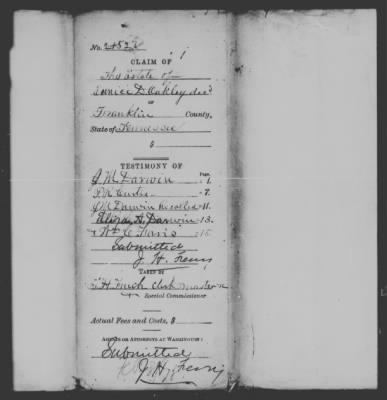 No. 2
CLAIM OF
The estate of
Eunice D. Oakley dec'd
OF
Franklin County,
State of Tennessee
$
TESTIMONY OF
Page.
J M Darwin 1.
7
J M Darwin recalled 11.
Eliza A. Darwin 13.
Wm C Faris 15
Submitted
J. H.
TAKEN BY
clk master
Special Commissioner
Actual Fees and Costs, $
AGENTS OR ATTORNEYS AT WASHINGTON:
Submitted
J. H.